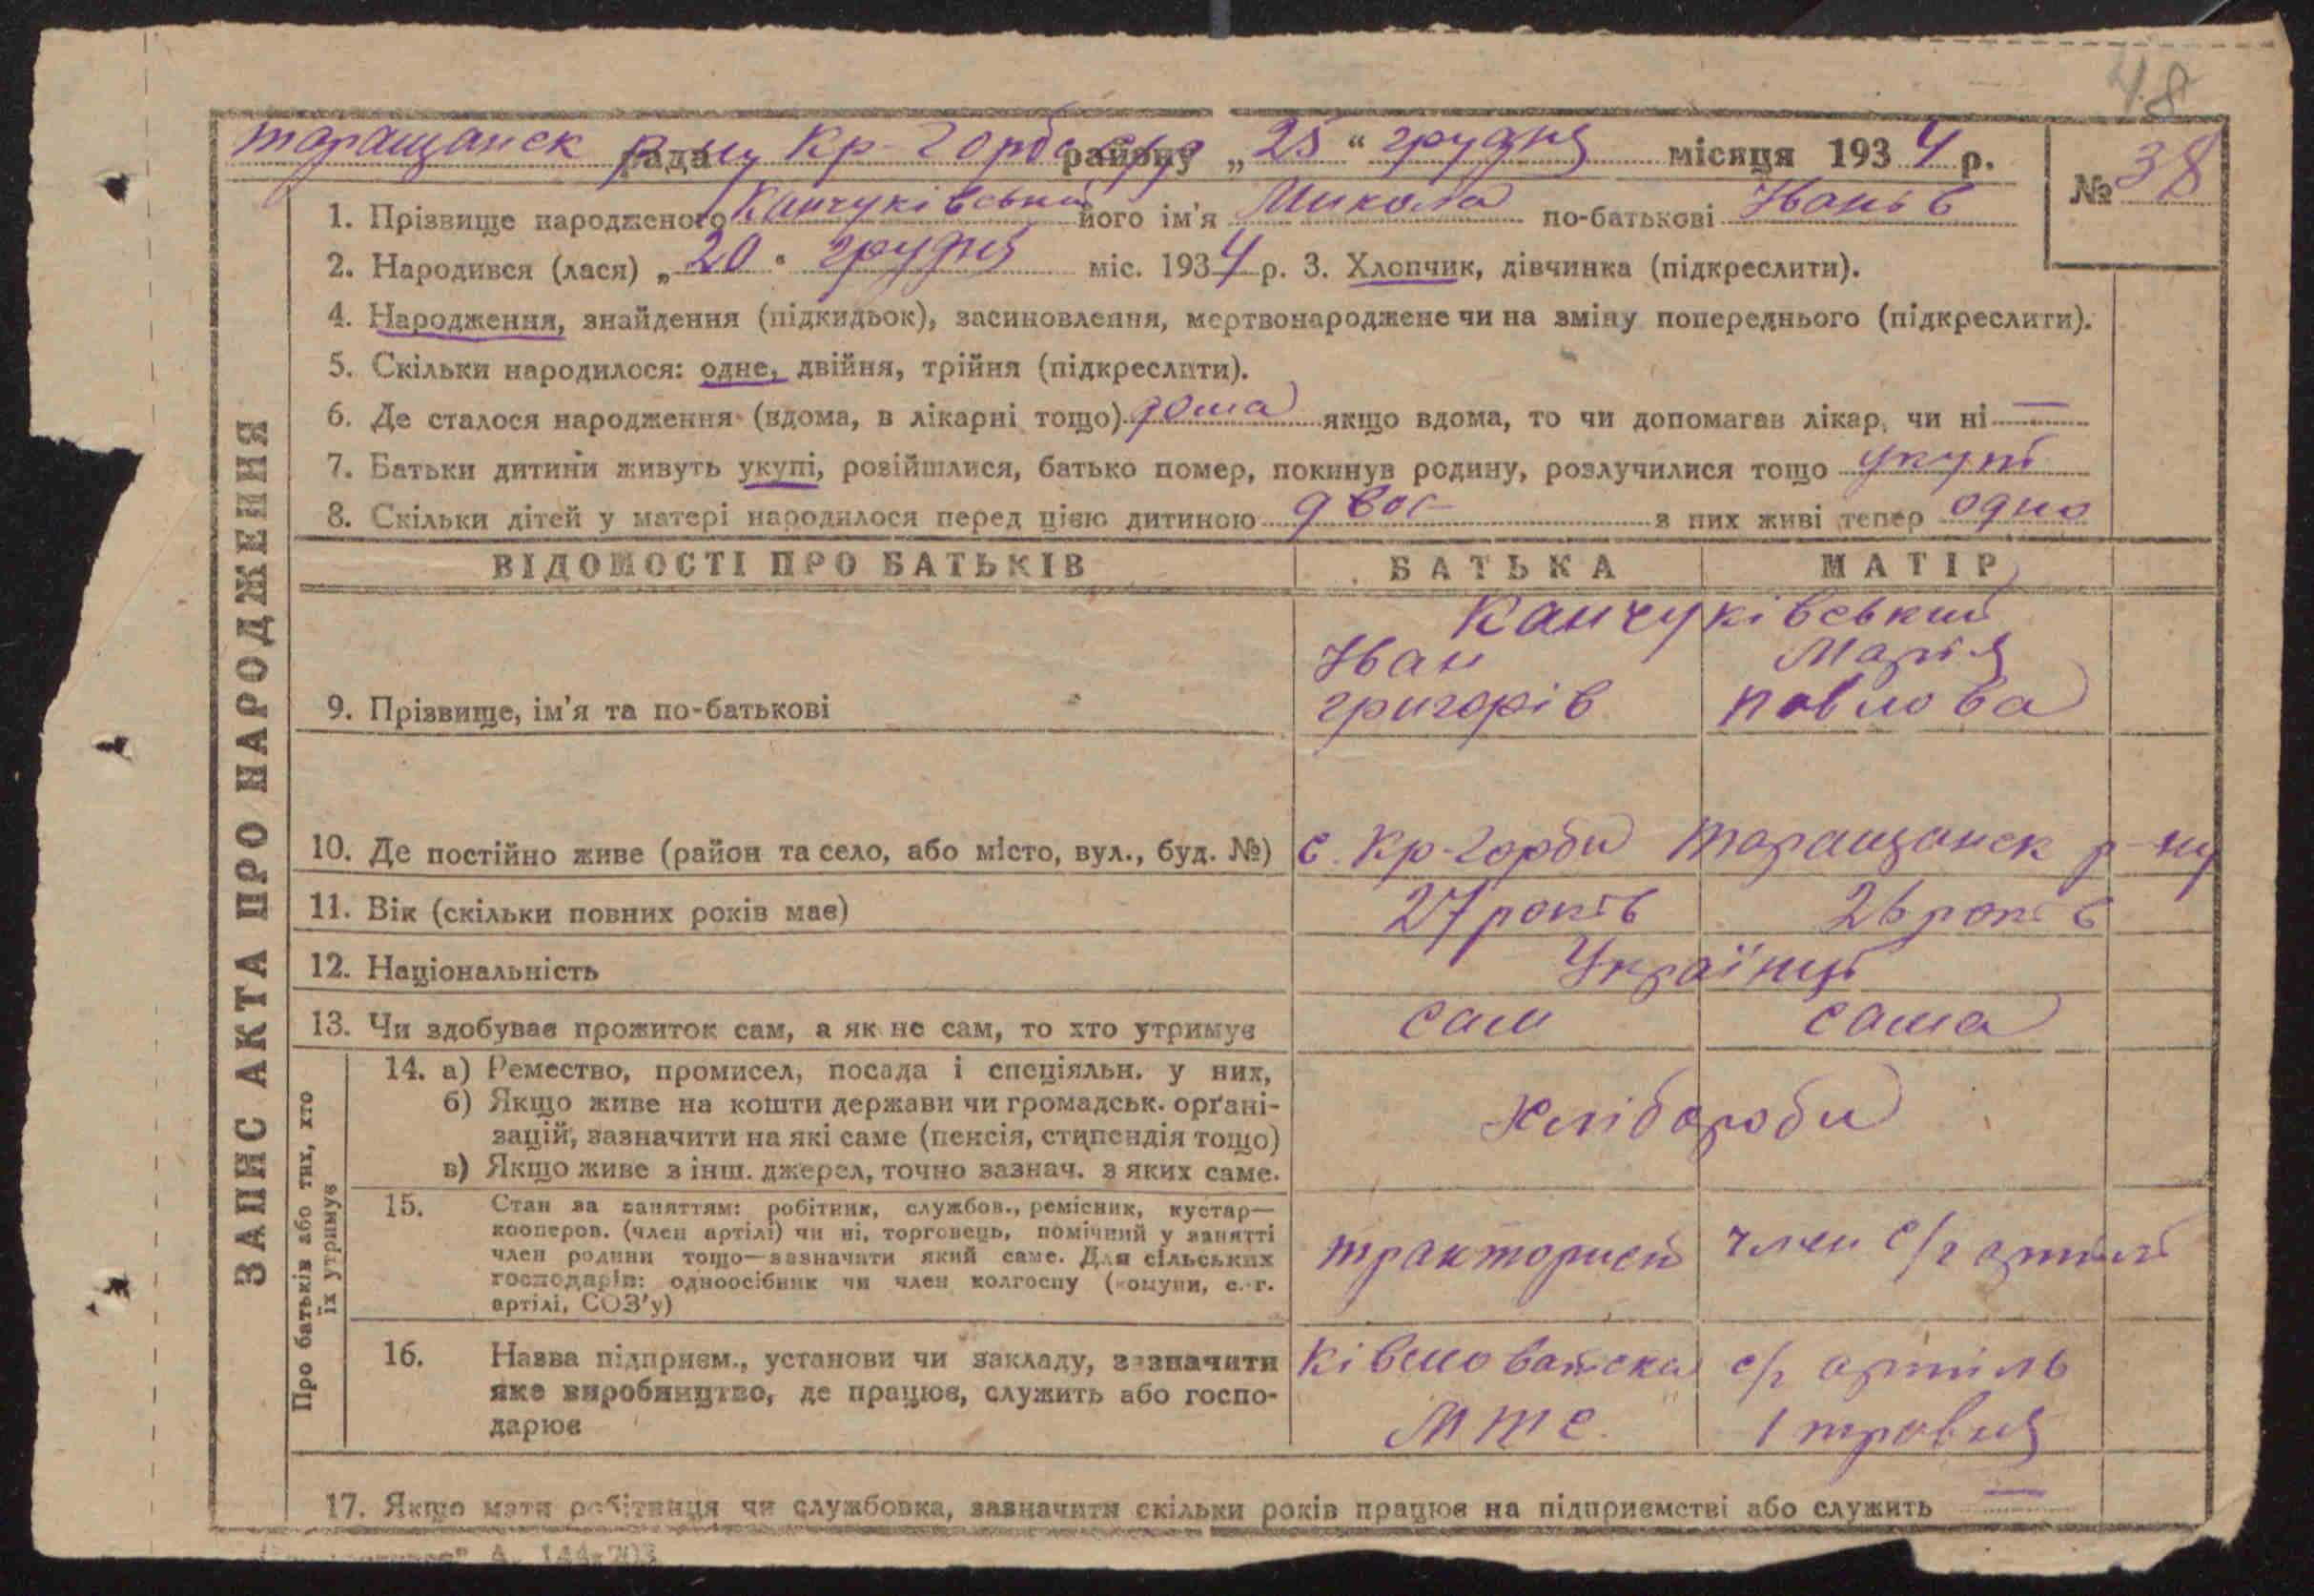 48
таращанск рада р-ну Кр-Горбс с/р району „25“ грудня місяця 1934 р.
№ 38
1. Прізвище народженого Канчуківський його ім'я Микола по-батькові Іванів
2. Народився (лася) „20“ грудня міс. 1934 р. 3. Хлопчик, дівчинка (підкреслити).
4. Народження, знайдення (підкидьок), засиновлення, мертвонароджене чи на зміну попереднього (підкреслити).
5. Скільки народилося: одне, двійня, трійня (підкреслити).
6. Де сталося народження (вдома, в лікарні тощо) дома якщо вдома, то чи допомагав лікар, чи ні —
7. Батьки дитини живуть укупі, розійшлися, батько помер, покинув родину, розлучилися тощо укупі
8. Скільки дітей у матері народилося перед цією дитиною двоє з них живі тепер одно
ЗАПИС АКТА ПРО НАРОДЖЕННЯ
ВІДОМОСТІ ПРО БАТЬКІВ БАТЬКА МАТІР
Канчуківський
Іван Марія
9. Прізвище, ім'я та по-батькові григорів павлова
10. Де постійно живе (район та село, або місто, вул., буд. №) с. Кр-Горби таращанск р-ну
11. Вік (скільки повних років має) 27 років 26 років
12. Національність Українці
13. Чи здобуває прожиток сам, а як не сам, то хто утримує сам сама
Про батьків або тих, хто
їх утримує
14. а) Ремество, промисел, посада і спеціяльн. у них,
б) Якщо живе на кошти держави чи громадськ. орґані-
зацій, зазначити на які саме (пенсія, стипендія тощо)
в) Якщо живе з інш. джерел, точно зазнач. з яких саме.
Хлібороби
15. Стан за заняттям: робітник, службов., ремісник, кустар—
кооперов. (член артілі) чи ні, торговець, помічний у занятті
член родини тощо—зазначити який саме. Для сільських
господарів: одноосібник чи член колгоспу (комуни, с.-г.
артілі, СОЗ'у)
тракторист член с/г артілі
16. Назва підприєм., установи чи закладу, зазначити
яке виробництво, де працює, служить або госпо-
дарює
с/г артіль
МТС. 1 травня
17. Якщо мати робітниця чи службовка, зазначити скільки років працює на підприємстві або служить —